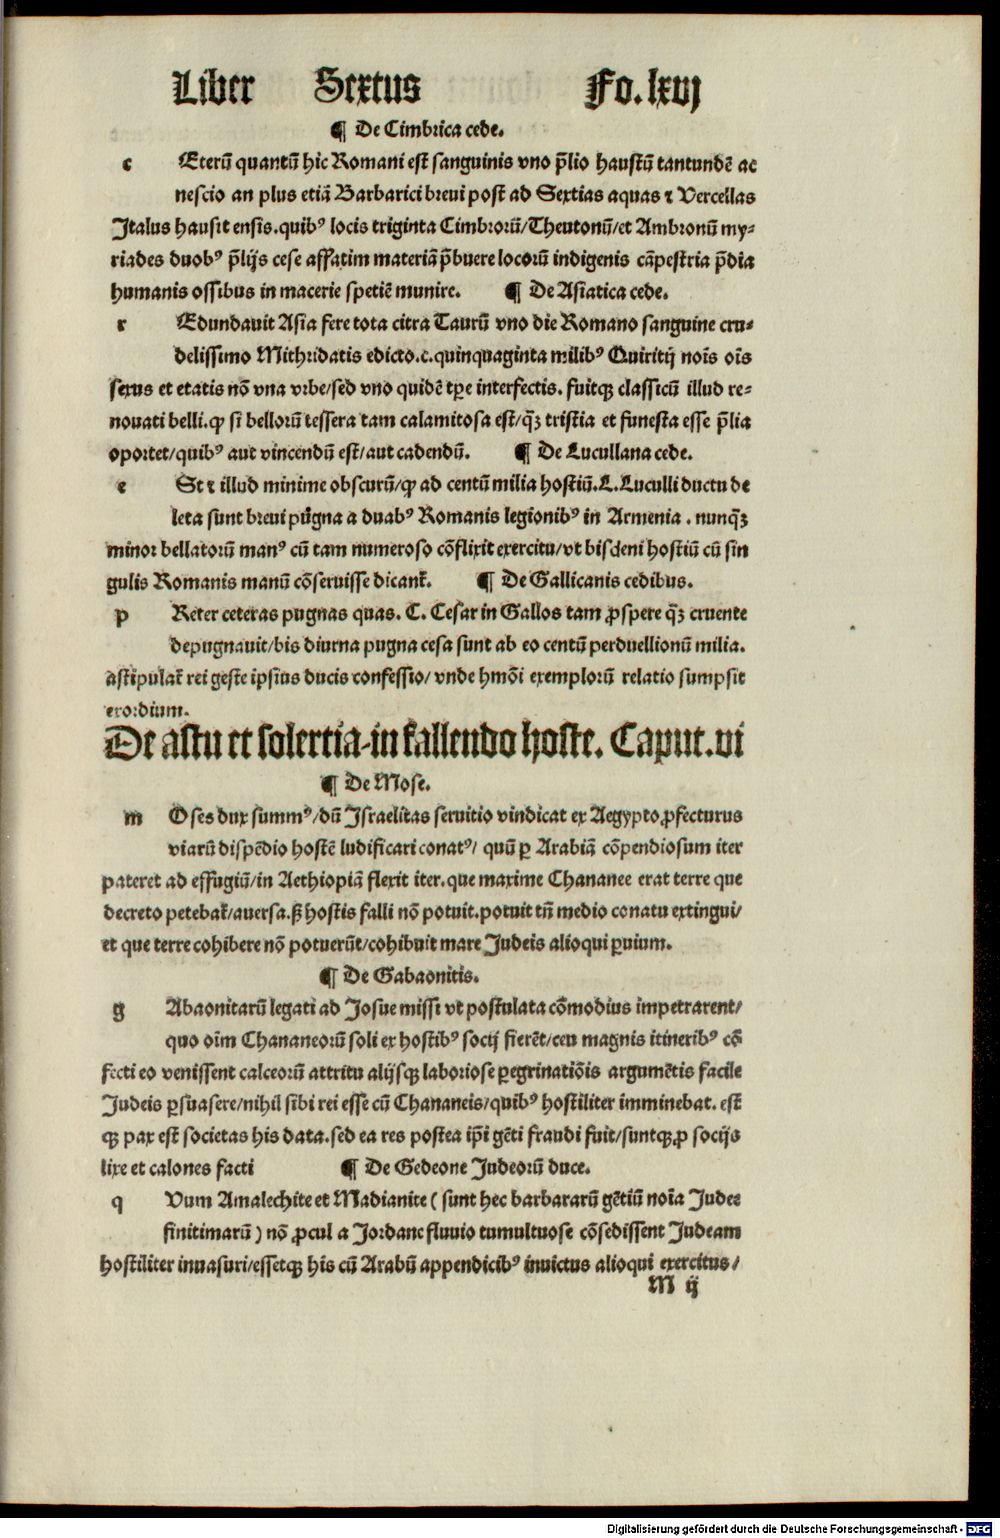 Liber Sextus Fo. lxvj
¶ De Cimbrica cede.
c Eterū quantū hic Romani est sanguinis vno p̄lio haustū tantundē ac
nescio an plus etiā Barbarici breui post ad Sextias aquas ⁊ Vercellas
Italus hausit ensis. quibꝰ locis triginta Cimbrorū/Theutonū/et Ambronū my-
riades duobꝰ p̄lijs cese affatim materiā p̄buere locorū indigenis cāpestria p̄dia
humanis ossibus in macerie spetiē munire. ¶ De Asiatica cede.
r Edundauit Asia fere tota citra Taurū vno die Romano sanguine cru-
delissimo Mithridatis edicto. c. quinquaginta milibꝰ Quiritij nōis oīs
sexus et etatis nō vna vrbe/sed vno quidē tꝑe interfectis. fuitqꝫ classicū illud re-
nouati belli. ꝙ si bellorū tessera tam calamitosa est/q̄ꝫ tristia et funesta esse p̄lia
oportet/quibꝰ aut vincendū est/aut cadendū. ¶ De Lucullana cede.
e St ⁊ illud minime obscurū/ꝙ ad centū milia hostiū. L. Luculli ductu de
leta sunt breui pugna a duabꝰ Romanis legionibꝰ in Armenia. nunq̄ꝫ
minor bellatorū manꝰ cū tam numeroso cōflixit exercitu/vt bisdeni hostiū cū sin
gulis Romanis manū cōseruisse dicant̄. ¶ De Gallicanis cedibus.
p Reter ceteras pugnas quas. C. Cesar in Gallos tam ꝓspere q̄ꝫ cruente
depugnauit/bis diurna pugna cesa sunt ab eo centū perduellionū milia.
astipulat̄ rei geste ipsius ducis confessio/vnde hmōi exemplorū relatio sumpsit
exordium.
De astu et solertia in fallendo hoste. Caput. vi
¶ De Mose.
m Oses dux summꝰ/dū Israelitas seruitio vindicat ex Aegypto ꝓfecturus
viarū dispēdio hostē ludificari conatꝰ/ quū ꝑ Arabiā cōpendiosum iter
pateret ad effugiū/in Aethiopiā flexit iter. que maxime Chananee erat terre que
decreto petebat̄/auersa. ꝭ hostis falli nō potuit. potuit tn̄ medio conatu extingui/
et que terre cohibere nō potuerūt/cohibuit mare Judeis alioqui ꝑuium.
¶ De Gabaonitis.
g Abaonitarū legati ad Josue missi vt postulata cōmodius impetrarent/
quo oīm Chananeorū soli ex hostibꝰ socij fierēt/ceu magnis itineribꝰ cō
fecti eo venissent calceorū attritu alijsqꝫ laboriose ꝑegrinatiōis argumētis facile
Judeis ꝑsuasere/nihil sibi rei esse cū Chananeis/quibꝰ hostiliter imminebat. est
qꝫ pax est societas his data. sed ea res postea ip̄i gēti fraudi fuit/suntqꝫ ꝓ socijs
lixe et calones facti ¶ De Gedeone Judeorū duce.
q Vum Amalechite et Madianite ( sunt hec barbararū gētiū noīa Judee
finitimarū ) nō ꝓcul a Jordane fluuio tumultuose cōsedissent Judeam
hostiliter inuasuri/essetqꝫ his cū Arabū appendicibꝰ inuictus alioqui exercitus/
M ij
Digitalisierung gefördert durch die Deutsche Forschungsgemeinschaft - DFG